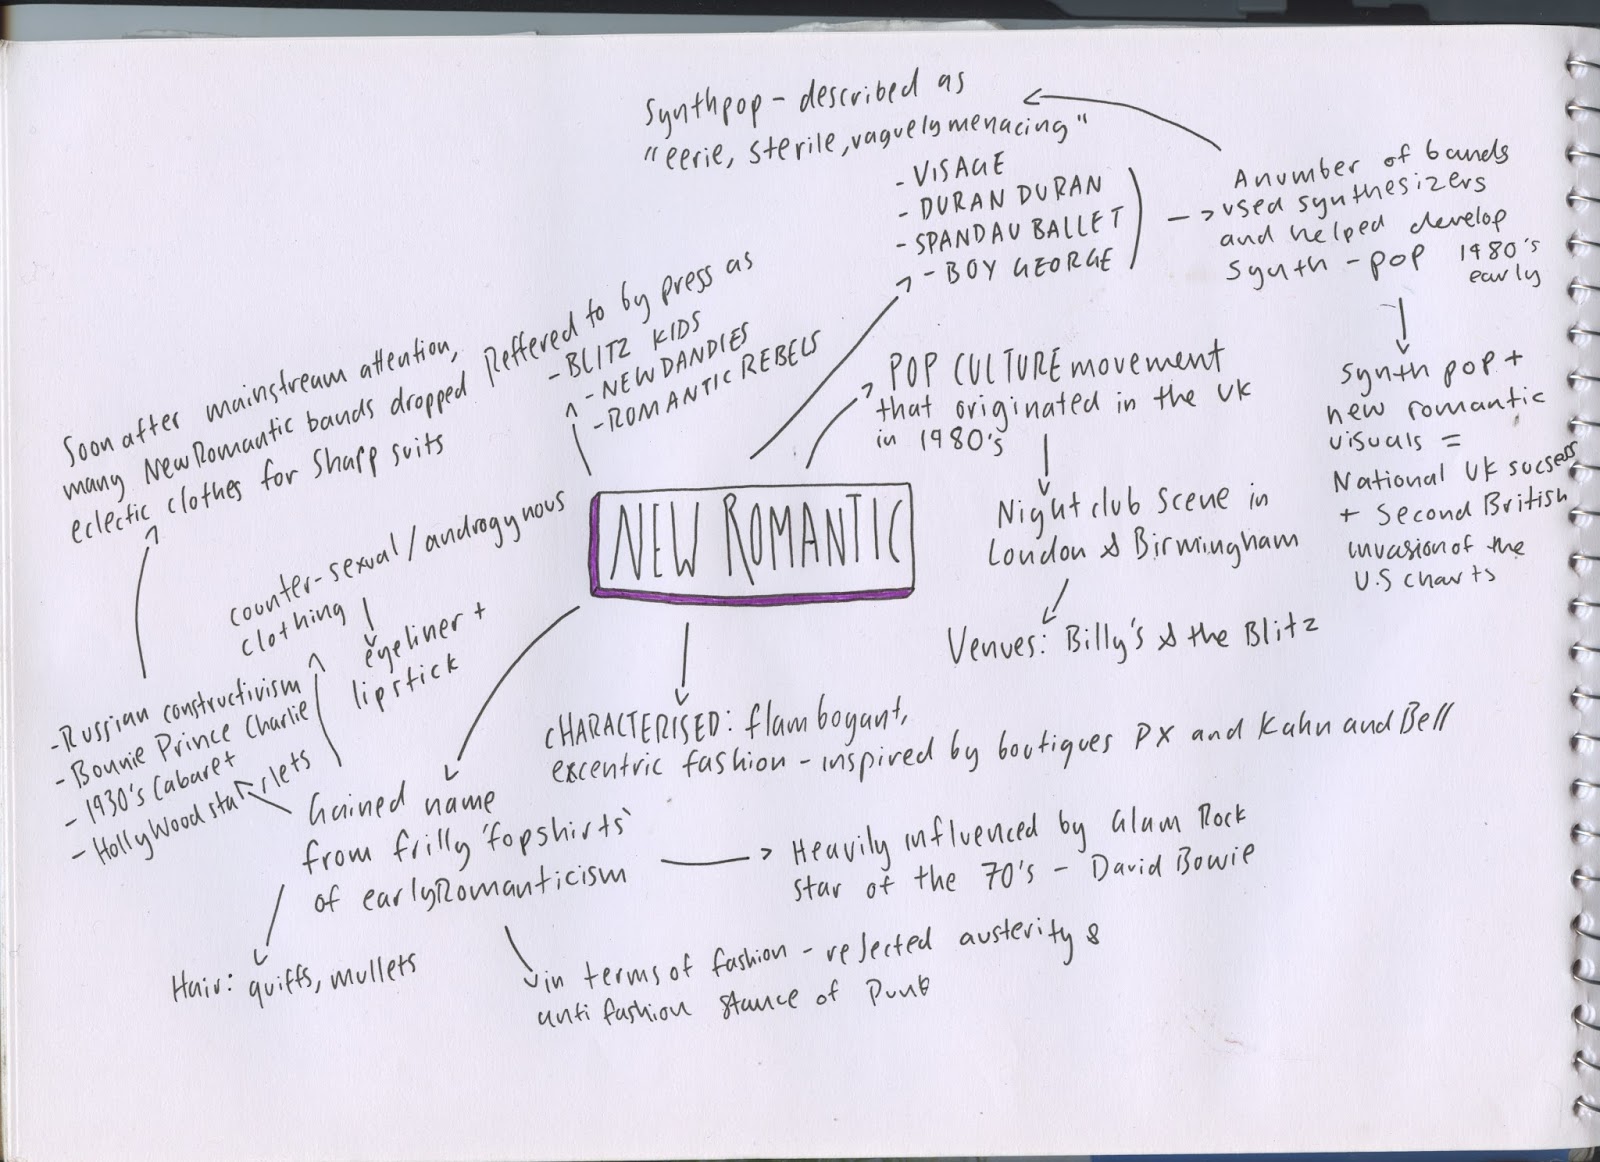 Synthpop - described as
"eerie, sterile, vaguely menacing"
- VISAGE
- DURAN DURAN
- SPANDAU BALLET
- BOY GEORGE
A number of bands
used synthesizers
and helped develop
Synth - pop 1980's
early
Synth pop +
new romantic
visuals =
National UK sucsess
+ Second British
invasion of the
U.S charts
Reffered to by press as
- BLITZ KIDS
- NEW DANDIES
- ROMANTIC REBELS
POP CULTURE movement
that originated in the UK
in 1980's
Nightclub scene in
London & Birmingham
Venues: Billy's & the Blitz
Soon after mainstream attention,
many New Romantic bands dropped
eclectic clothes for sharp suits
NEW ROMANTIC
counter-sexual / androgynous
clothing
eyeliner +
lipstick
- Russian constructivism
- Bonnie Prince Charlie
- 1930's Cabaret
- Hollywood starlets
CHARACTERISED: flamboyant,
excentric fashion - inspired by boutiques PX and Kahn and Bell
Gained name
from frilly 'fopshirts'
of early Romanticism
Heavily influenced by Glam Rock
star of the 70's - David Bowie
Hair: quiffs, mullets
in terms of fashion - rejected austerity &
anti fashion stance of Punk